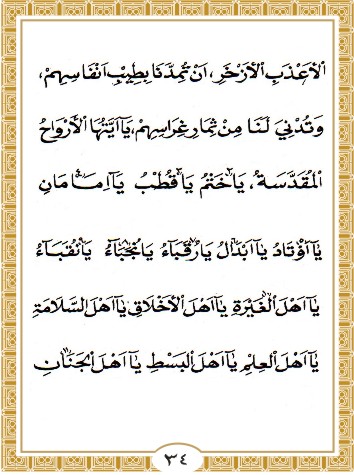 الْأَعْذَبِ الْأَزْخَرِ، اَنْ تُمِدَّنَا بِطِيبِ اَنْفَاسِهِمْ،
وَتُدْنِيَ لَنَا مِنْ ثِمَارِ غِرَاسِهِمْ، يَآ اَيَّتُهَا الْأَرْوَاحُ
الْمُقَدَّسَةُ، يَا خَتْمُ يَا قُطْبُ يَآ اِمَامَانِ
يَآ اَوْتَادُ يَآ اَبْدَالُ يَا رُقَبَاءُ يَا نُجَبَاءُ يَا نُقَبَاءُ
يَآ اَهْلَ الْغَيْرَةِ يَآ اَهْلَ الْأَخْلَاقِ يَآ اَهْلَ السَّلَامَةِ
يَآ اَهْلَ الْعِلْمِ يَآ اَهْلَ الْبَسْطِ يَآ اَهْلَ الْجَنَانِ
٣٤